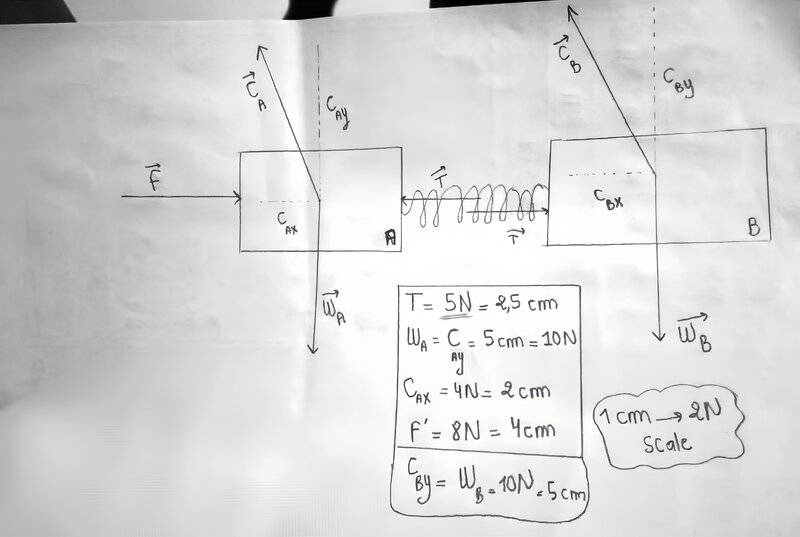 C⃗_B
C⃗_A
C_Ay
C_By
F⃗
T⃗
C_Ax
C_Bx
A
T⃗
B
W⃗_A
W⃗_B
T = 5N = 2,5 cm
W_A = C_Ay = 5cm = 10N
C_Ax = 4N = 2 cm
F' = 8N = 4cm
C_By = W_B = 10N = 5cm
1 cm → 2N
Scale